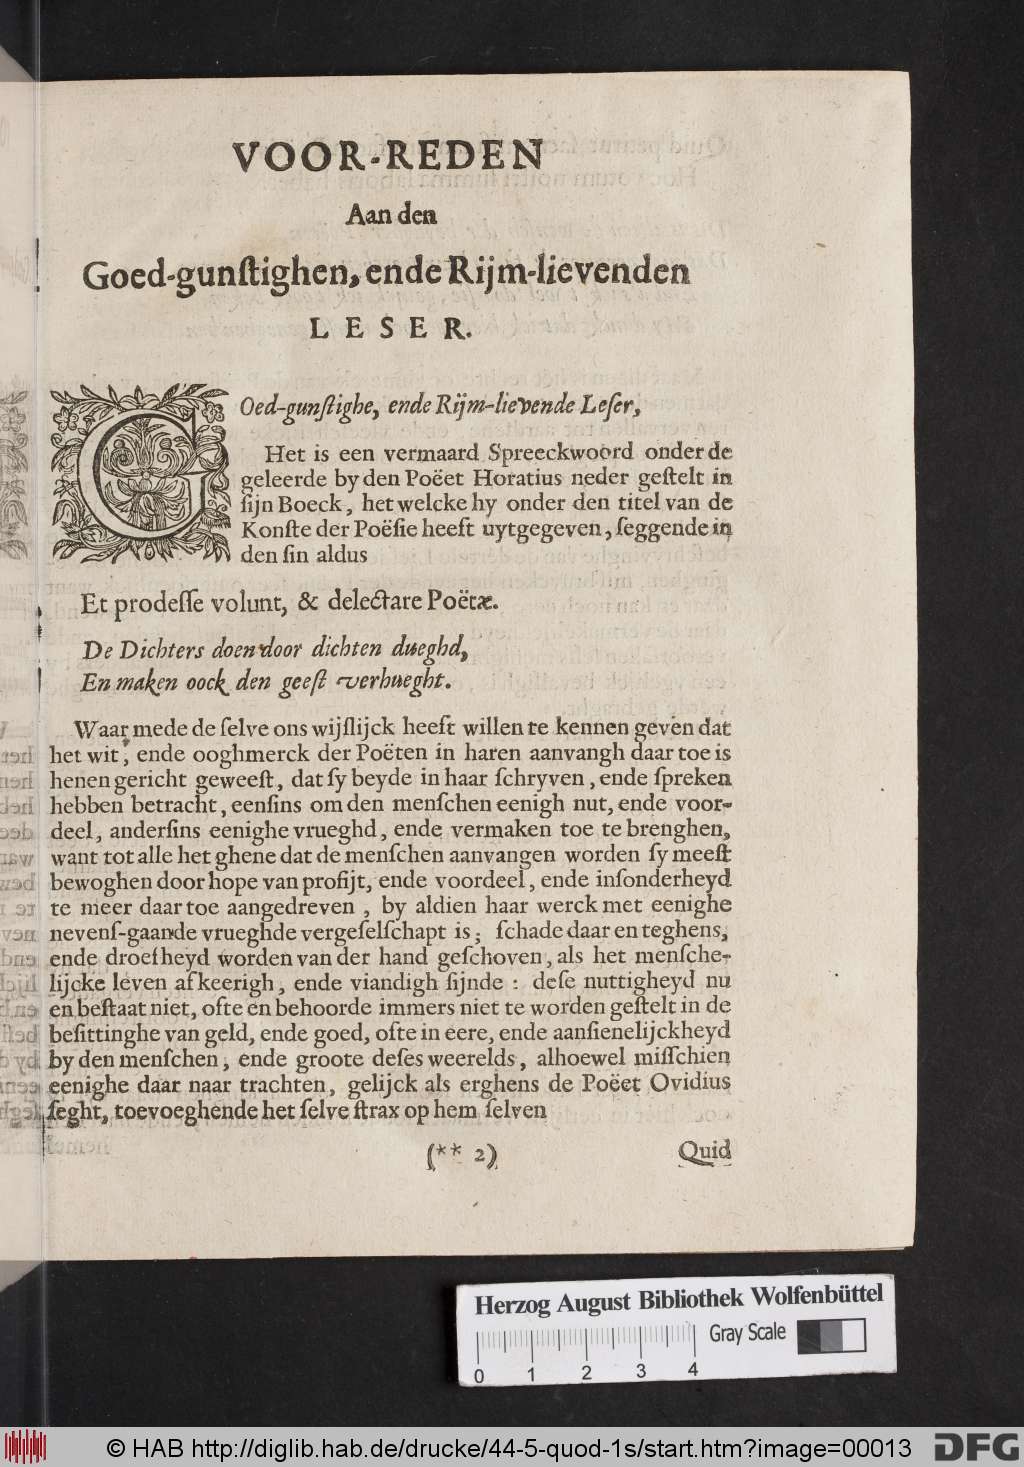 VOOR-REDEN
Aan den
Goed-gunſtighen, ende Rijm-lievenden
LESER.
GOed-gunſtighe, ende Rijm-lievende Leſer,
Het is een vermaard Spreeckwoord onder de
geleerde by den Poëet Horatius neder geſtelt in
ſijn Boeck, het welcke hy onder den titel van de
Konſte der Poëſie heeft uytgegeven, ſeggende in
den ſin aldus
Et prodeſſe volunt, & delectare Poëtæ.
De Dichters doen door dichten dueghd,
En maken oock den geeſt verhueght.
Waar mede de ſelve ons wijſlijck heeft willen te kennen geven dat
het wit, ende ooghmerck der Poëten in haren aanvangh daar toe is
henen gericht geweeſt, dat ſy beyde in haar ſchryven, ende ſpreken
hebben betracht, eenſins om den menſchen eenigh nut, ende voor-
deel, anderſins eenighe vrueghd, ende vermaken toe te brenghen,
want tot alle het ghene dat de menſchen aanvangen worden ſy meeſt
bewoghen door hope van profijt, ende voordeel, ende inſonderheyd
te meer daar toe aangedreven, by aldien haar werck met eenighe
nevenſ-gaande vrueghde vergeſelſchapt is; ſchade daar en teghens,
ende droefheyd worden van der hand geſchoven, als het menſche-
lijcke leven afkeerigh, ende viandigh ſijnde: deſe nuttigheyd nu
en beſtaat niet, ofte en behoorde immers niet te worden geſtelt in de
beſittinghe van geld, ende goed, ofte in eere, ende aanſienelijckheyd
by den menſchen, ende groote deſes weerelds, alhoewel miſſchien
eenighe daar naar trachten, gelijck als erghens de Poëet Ovidius
ſeght, toevoeghende het ſelve ſtrax op hem ſelven
(** 2) Quid
Herzog August Bibliothek Wolfenbüttel
Gray Scale
0 1 2 3 4
© HAB http://diglib.hab.de/drucke/44-5-quod-1s/start.htm?image=00013
DFG